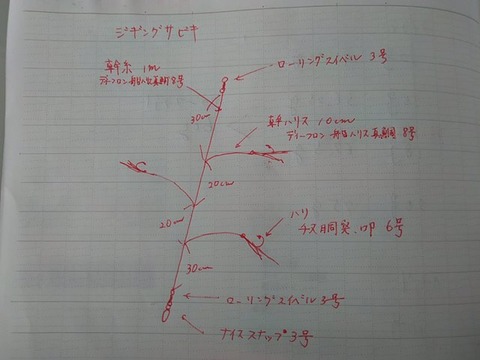 ジギングサビキ
ローリングスイベル 3号
幹糸 1m
ディーフロン 船ハリス真鯛 8号
30cm
ハリス 10cm
ディーフロン 船ハリス真鯛 8号
20cm
20cm
ハリ
チヌ 6号
30cm
ローリングスイベル 3号
ナイススナップ 3号